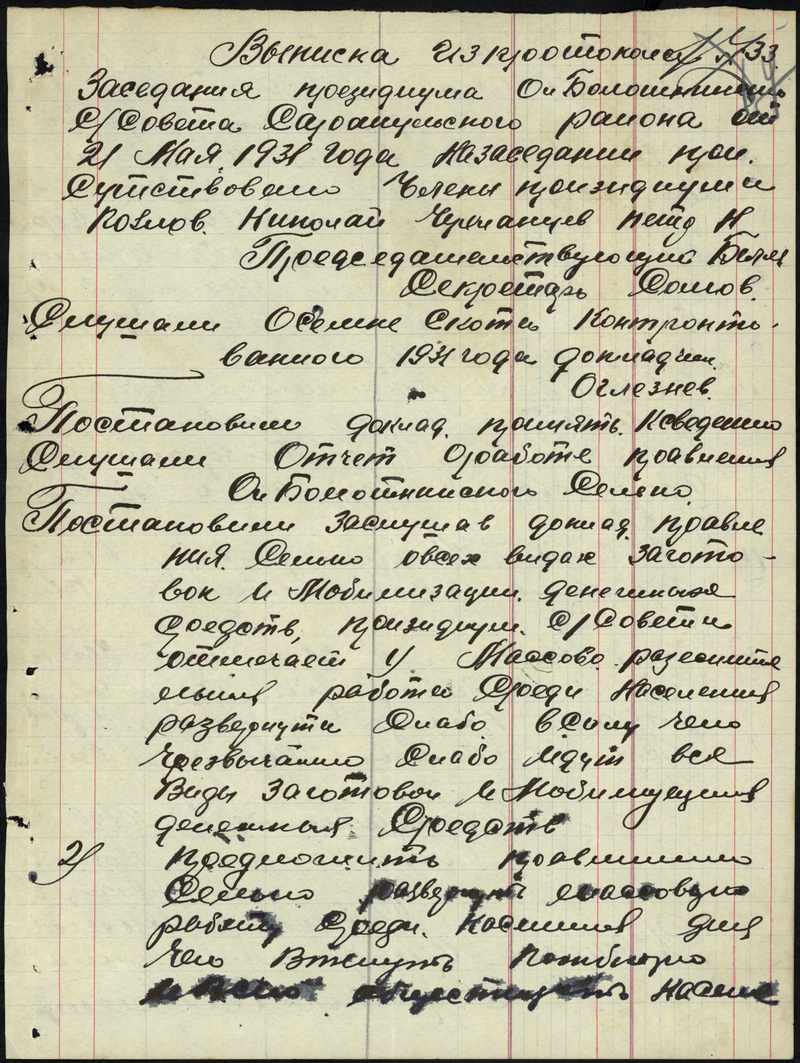 Выписка из протокола № 33.
Заседания президиума
С/Совета Сарапульского района от
21 Мая 1931 года на заседании при.
сутствовало Члены призидиума
Козлов. Николай Черманцев Петр Н
Председательствующий
Секретарь
Слушали О съемке скота Контракто-
ванного 1931 года докладчик.
Оглезнев.
Постановили доклад принять. К сведению
Слушали Отчет о работе правления
Сельпо.
Постановили Заслушав доклад. правле
ния. Сельпо о всех видах загото-
вок и Мобилизации. денежных
средств, призидиум. С/Совета
отмечает 1) Массово. разесните
льная работа Среди Населения
развернута Слабо. в силу чего
чрезвычайно Слабо идут все
Виды Заготовок и Мобилизация
денежных Средств
2) Предложить правлению
Сельпо развернуть массовую
работу Среди. Населения для
чего Втянуть
и всю общественность